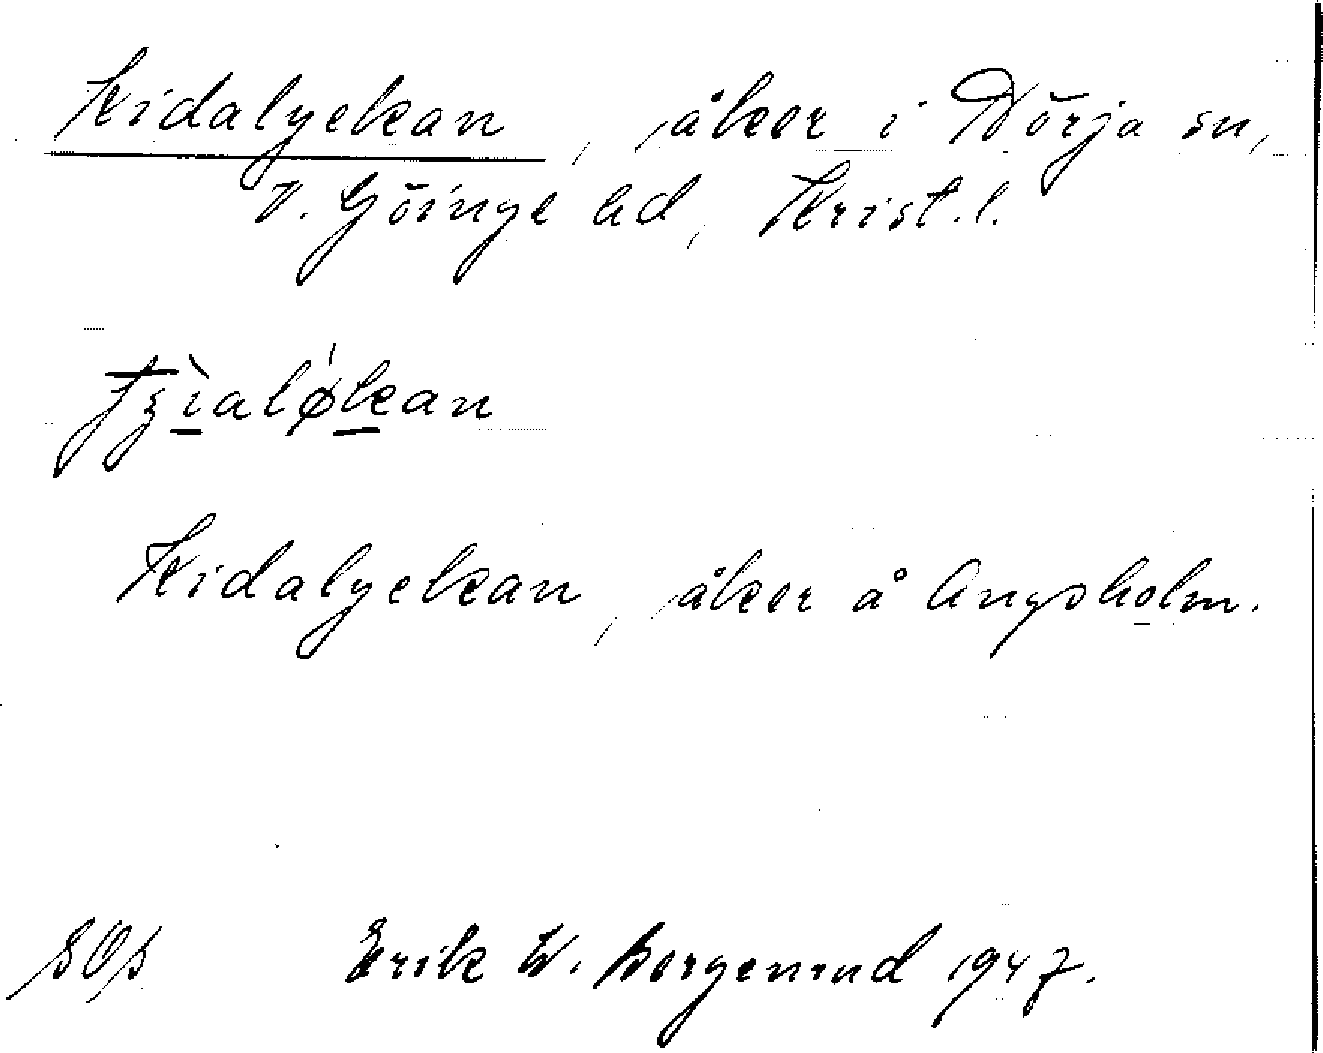 Kidalyckan, åker i Nörja sn,
V. Göinge hd, Krist. l.
Kidalyckan, åker å Ängsholm.
Erik W. Bergenrud 1947.